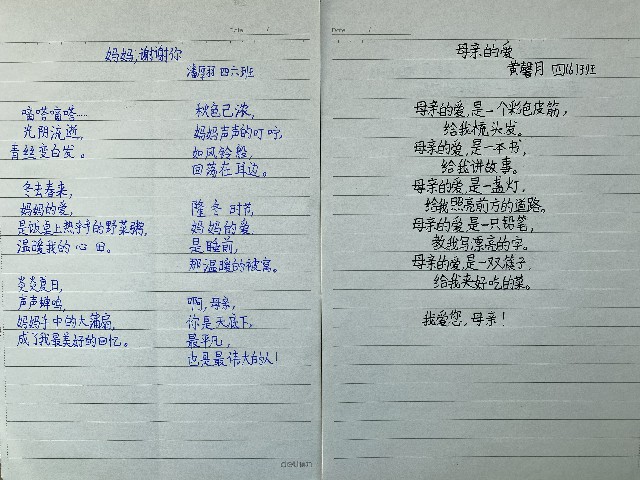 Date /
妈妈,谢谢你
潘厚羽 四六班
嘀嗒嘀嗒……
光阴流逝,
青丝变白发。
冬去春来,
妈妈的爱,
是饭桌上热乎乎的野菜粥,
温暖我的心田。
炎炎夏日,
声声蝉鸣,
妈妈手中的大蒲扇,
成了我最美好的回忆。
秋色已浓,
妈妈声声的叮咛,
如风铃般,
回荡在耳边。
隆冬时节,
妈妈的爱
是睡前,
那温暖的被窝。
啊,母亲,
你是天底下,
最平凡,
也是最伟大的人!
Date /
母亲的爱
黄馨月 四(6)班
母亲的爱,是一个彩色皮筋,
给我梳头发。
母亲的爱,是一本书,
给我讲故事。
母亲的爱,是一盏灯,
给我照亮前方的道路。
母亲的爱是一只铅笔,
教我写漂亮的字。
母亲的爱,是一双筷子,
给我夹好吃的菜。
我爱您,母亲!